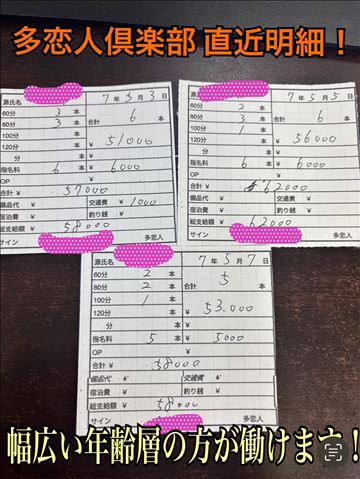 多恋人倶楽部 直近明細！
源氏名
7年5月3日
60分 3本 合計 6本
80分 3本
100分 本 ¥
120分 本 ¥ 51000
分 本 ¥
指名料 6本 ¥ 6000
OP ¥
合計 ¥ 57000
備品代 ¥ 交通費 ¥ 1000
宿泊費 ¥ 釣り銭 ¥
総支給額 ¥ 58000
サイン 多恋人
源氏名
7年5月5日
60分 2本 合計 6本
80分 3本
100分 1本 ¥
120分 本 ¥ 56000
分 本 ¥
指名料 6本 ¥ 6000
OP ¥
合計 ¥ 62000
備品代 ¥ 交通費 ¥
宿泊費 ¥ 釣り銭 ¥
総支給額 ¥ 62000
サイン 多恋人
源氏名
7年5月7日
60分 2本 合計 5本
80分 2本
100分 1本 ¥
120分 本 ¥ 53.000
分 本 ¥
指名料 5本 ¥ 5000
OP ¥
合計 ¥ 58000
備品代 ¥ 交通費 ¥
宿泊費 ¥ 釣り銭 ¥
総支給額 ¥ 58000
サイン 多恋人
幅広い年齢層の方が働けます！